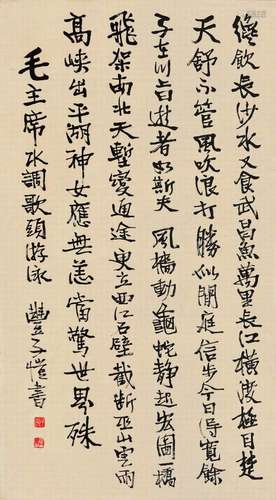 纔飲長沙水又食武昌魚萬里長江橫渡極目楚
天舒不管風吹浪打勝似閒庭信步今日得寬餘
子在川上曰逝者如斯夫 風檣動龜蛇靜起宏圖一橋
飛架南北天塹變通途更立西江石壁截斷巫山雲雨
高峽出平湖神女應無恙當驚世界殊
毛主席水調歌頭游泳 豐子愷書